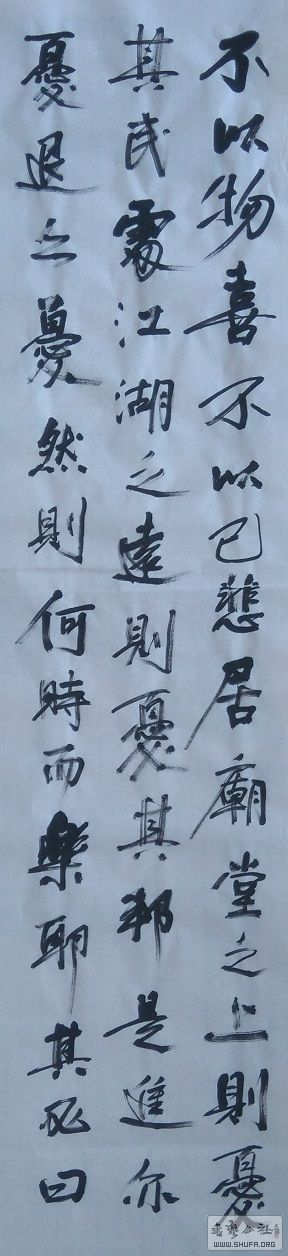 不以物喜不以己悲居廟堂之上則憂
其民處江湖之遠則憂其邦是進亦
憂退之憂然則何時而樂耶其必曰
WWW.SHUFA.ORG